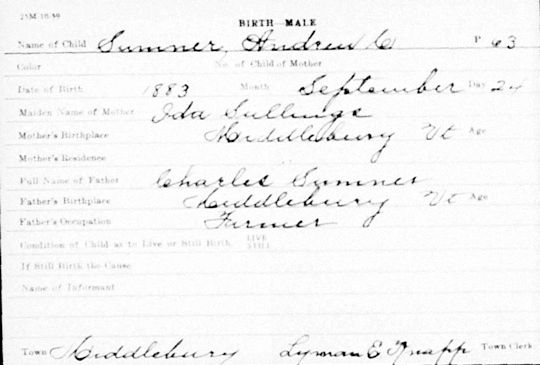 25M-10-'19
BIRTH—MALE
Name of Child Sumner, Andrew C P. 63
Color No. of Child of Mother
Date of Birth 1883 Month September Day 24
Maiden Name of Mother Ida Sullings
Mother's Birthplace Middlebury Vt Age
Mother's Residence
Full Name of Father Charles Sumner
Father's Birthplace Middlebury Vt Age
Father's Occupation Farmer
Condition of Child as to Live or Still Birth, LIVE
STILL
If Still Birth the Cause
Name of Informant
Town Middlebury Lyman E Knapp Town Clerk